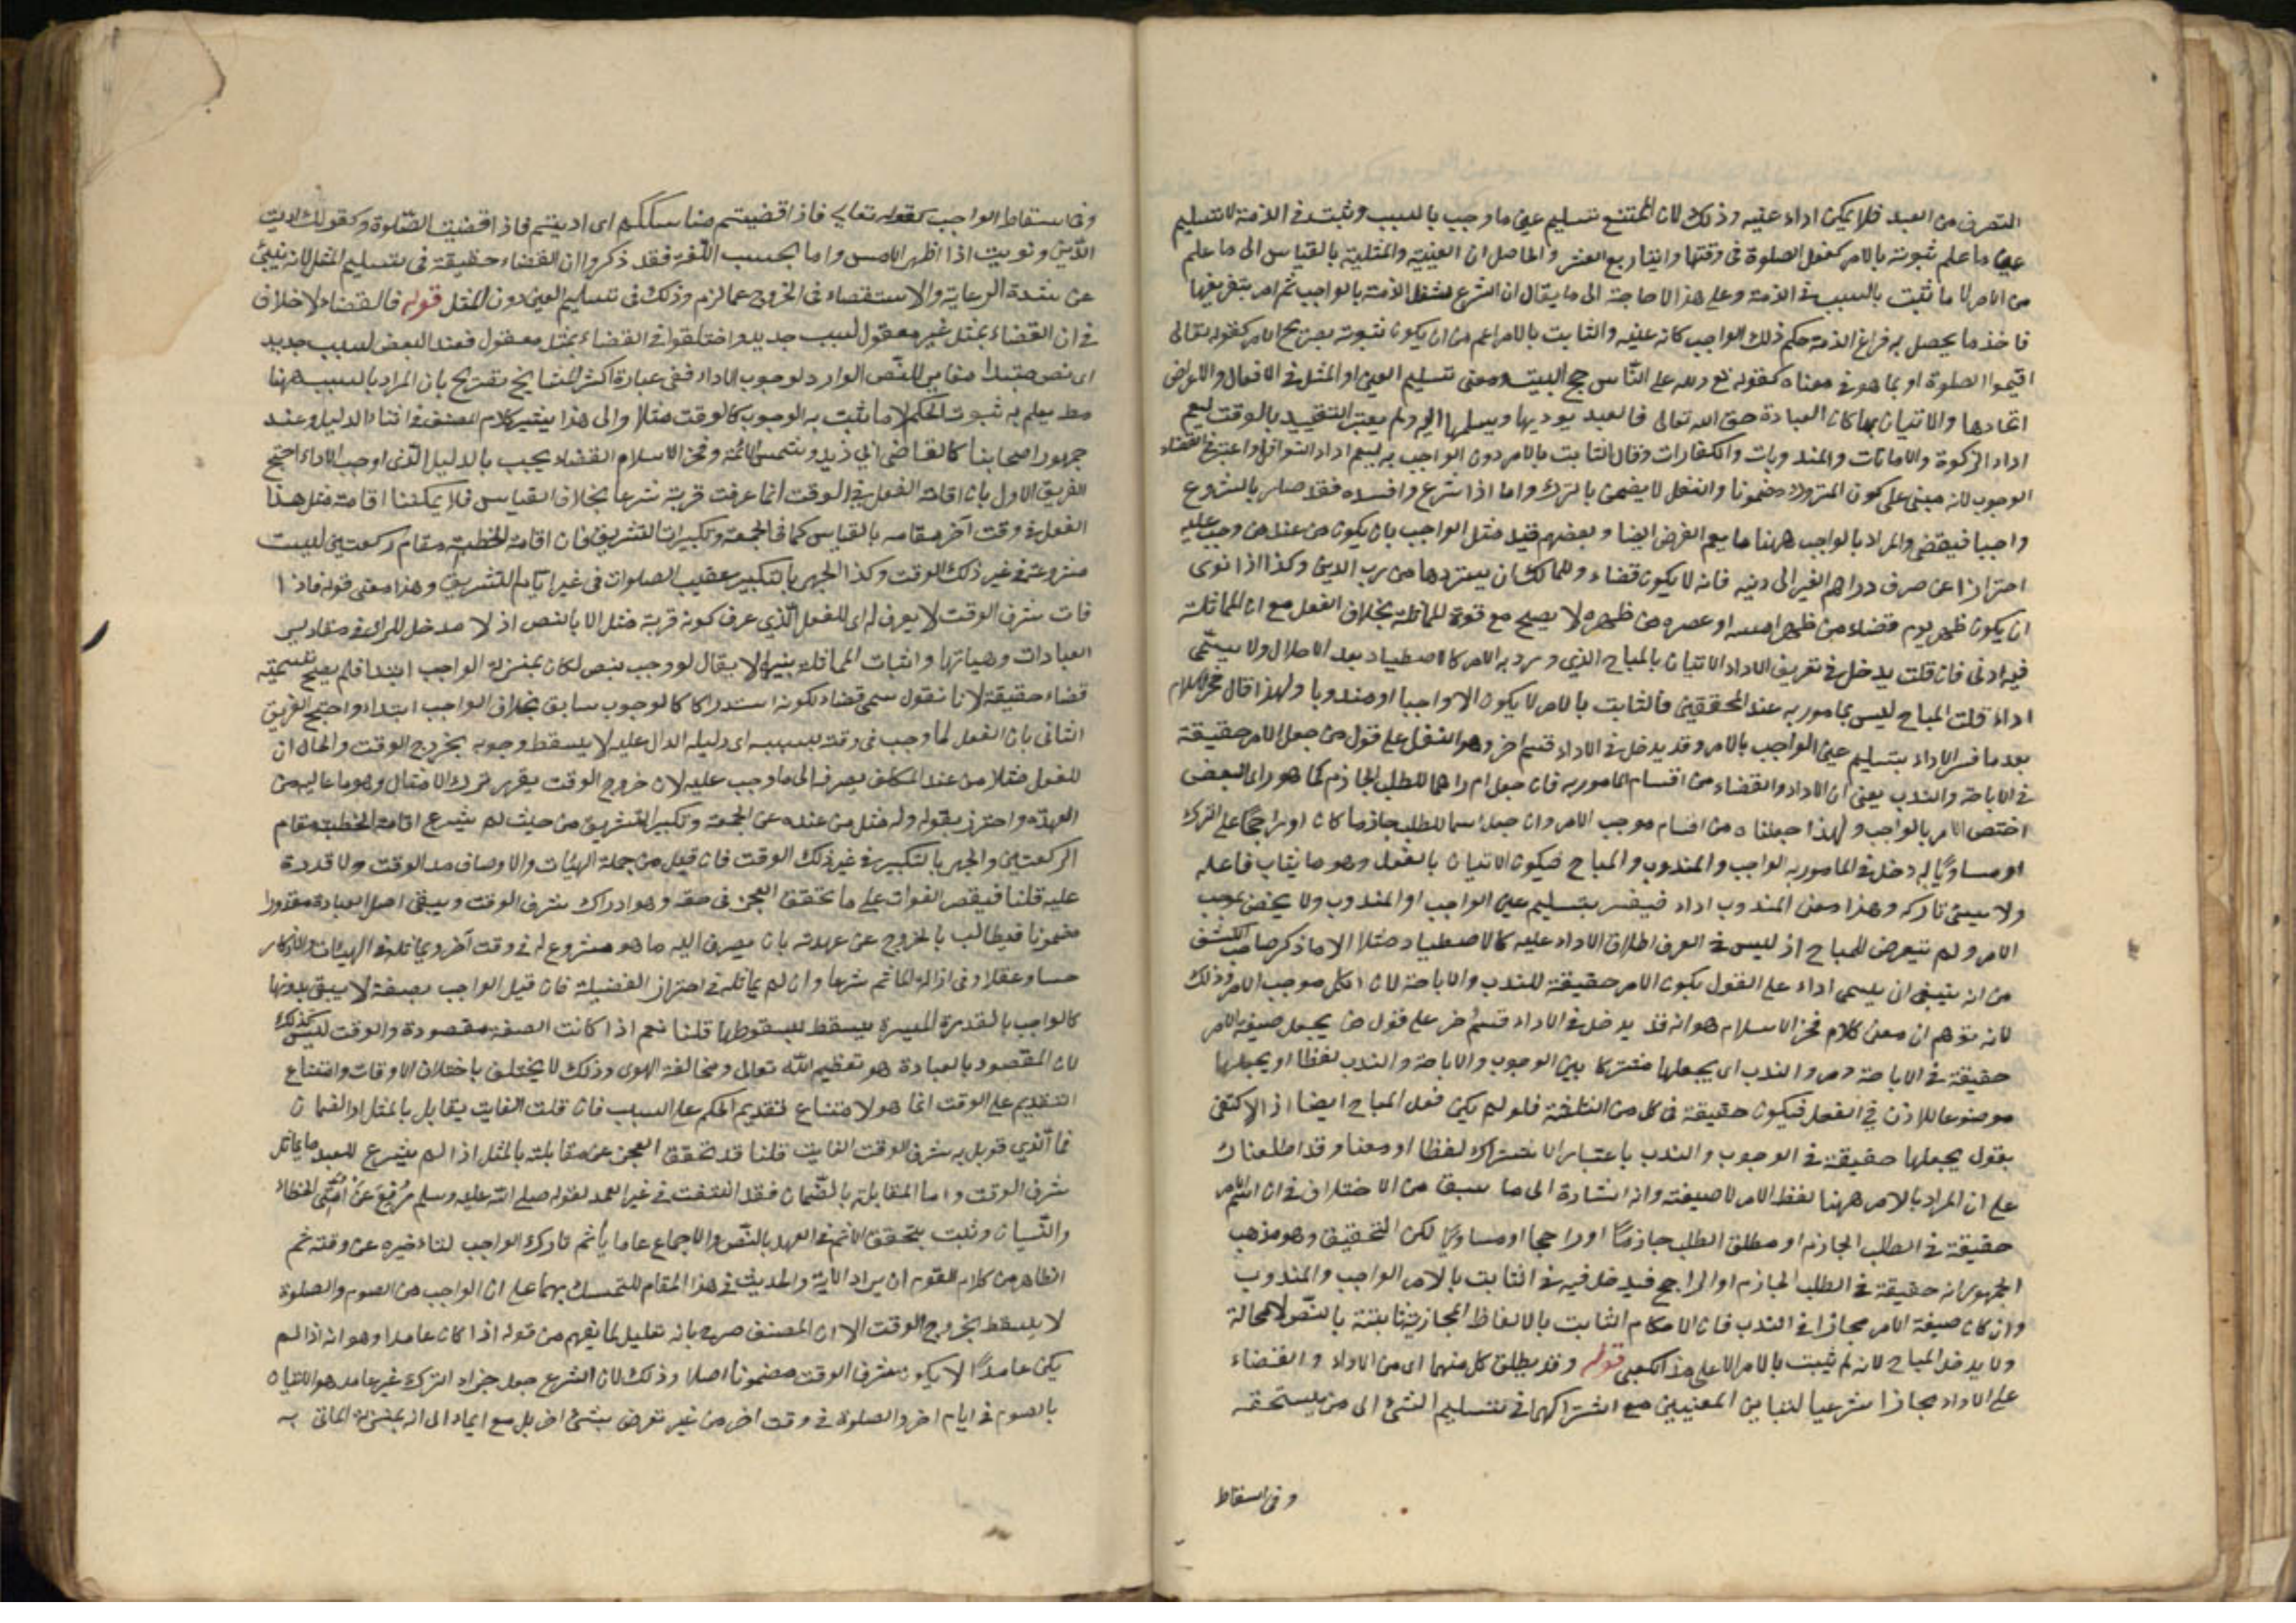 التصرف من العبد فلا يمكن اداء عينه وذلك لان الممتنع تسليم عين ما وجب بالسبب وثبت في الذمة لا تسليم
عين ما علم ثبوته بالامر كفعل الصلوة في وقتها وايتاء ربع العشر والحاصل ان العينية والمثلية بالقياس الى ما علم
من الامر لا ما ثبت بالسبب في الذمة وعلى هذا لا حاجة الى ما يقال ان الشرع شغل الذمة بالواجب ثم امر بتفريغها
فاخذ ما يحصل به فراغ الذمة حكم ذلك الواجب كانه عينه والثابت بالامر اعم من ان يكون ثبوته بصريح الامر كقوله تعالى
اقيموا الصلوة او بما هو في معناه كقوله تع ولله على الناس حج البيت ومعنى تسليم العين او المثل في الافعال والاعراض
اتحادها والاتيان بها كان العبادة حق الله تعالى فالعبد يوديها ويسلمها اليه ولم يعتبر التقييد بالوقت ليعم
اداء الزكوة والامانات والمندوبات والكفارات وقال الثابت بالامر دون الواجب به ليعم اداء النوافل واعتبر في القضاء
الوجوب لانه مبني على كون المتروك مضمونا والنفل لا يضمن بالترك واما اذا شرع وافسده فقد صار بالشروع
واجبا فيقضى والمراد بالواجب ههنا ما يعم الفرض ايضا وبعضهم قيد مثل الواجب بان يكون من عند من وجب عليه
احترازا عن صرف دراهم الغير الى دينه فانه لا يكون قضاء وللمالك ان يستردها من رب الدين وكذا اذا نوى
ان يكون ظهر يوم قضاء من ظهر امسه او عصره من ظهره لا يصح مع قوة المماثلة بخلاف الفعل مع ان المماثلة
فيه ادنى فان قلت يدخل في تعريف الاداء الاتيان بالمباح الذي ورد به الامر كالاصطياد بعد الاحلال ولا يسمى
اداء قلت المباح ليس بمامور به عند المحققين فالثابت بالامر لا يكون الا واجبا او مندوبا ولهذا قال فخر الاسلام
بعد ما فسر الاداء بتسليم عين الواجب بالامر وقد يدخل في الاداء قسم اخر وهو النفل على قول من جعل الامر حقيقة
في الاباحة والندب يعنى ان الاداء والقضاء من اقسام المامور به فان جعل ام را هما للطلب الجازم كما هو راى البعض
اختص الامر بالواجب ولهذا جعلناه من اقسام موجب الامر وان جعل اسما للطلب جازما كان او راجحا على الترك
او مساويا له دخل في المامور به الواجب والمندوب والمباح فيكون الاتيان بالفعل وهو ما يثاب فاعله
ولا يسئ تاركه وهذا معنى المندوب اداء فيفسر بتسليم عين الواجب او المندوب ولا يختص بموجب
الامر ولم يتعرض للمباح اذ ليس في العرف اطلاق الاداء عليه كالاصطياد مثلا الا ما ذكر صاحب الكشف
من انه ينبغى ان يسمى اداء على القول بكون الامر حقيقة للندب والاباحة لان الكل موجب الامر وذلك
لانه توهم ان معنى كلام فخر الاسلام هو انه قد يدخل في الاداء قسم اخر على قول من يجعل صيغة الامر
حقيقة في الاباحة والندب اى يجعلها مشتركا بين الوجوب والاباحة والندب لفظا او يجعلها
موضوعا للاذن في الفعل فيكون حقيقة في كل من الثلثة فلو لم يكن فعل المباح ايضا اذ الاكتفى
بقول يجعلها حقيقة في الوجوب والندب باعتبار الاشتراك لفظا او معنا وقد اطلعناك
على ان المراد بالامر ههنا لفظ الامر لا صيغته وانه اشارة الى ما سبق من الاختلاف في ان اسم الامر
حقيقة في الطلب الجازم او مطلق الطلب جازما او راجحا او مساويا لكن التحقيق وهو مذهب
الجمهور انه حقيقة في الطلب الجازم او الراجح فيدخل فيه في الثابت بالامر الواجب والمندوب
وان كان صيغة الامر مجازا في الندب فان الاحكام الثابت بالالفاظ المجازية ثابتة بالنص لا محالة
ولا يدخل المباح لانه لم يثبت بالامر الا على مذهب الكعبى قوله وقد يطلق كل منهما اى من الاداء والقضاء
على الاداء مجازا شرعيا لتباين المعنيين مع اشتراكهما في تسليم الشئ الى من يستحقه
وفى اسقاط
وفى اسقاط الواجب كقوله تعالى فاذا قضيتم مناسككم اى اديتم فاذا قضيت الصلوة وكقولك اديت
الدين ونويت اداء ظهر الامس واما بحسب اللغة فقد ذكروا ان القضاء حقيقة في تسليم المثل لانه ينبئ
عن شدة الرعاية والاستقصاء في الخروج عما لزم وذلك في تسليم العين دون المثل قوله فالقضاء لا خلاف
في ان القضاء بمثل غير معقول بسبب جديد واختلفوا في القضاء بمثل معقول فعند البعض بسبب جديد
اى نص مبتدا مغاير للنص الوارد لوجوب الاداء ففى عبارة اكثر المشايخ تصريح بان المراد بالسبب ههنا
ما يعلم به ثبوت الحكم لا ما يثبت به الوجوب كالوقت مثلا والى هذا يشير كلام المصنف في اثناء الدليل وعند
جمهور اصحابنا كالقاضى ابي زيد وشمس الائمة وفخر الاسلام القضاء يجب بالدليل الذى اوجب الاداء احتج
الفريق الاول بان اقامة الفعل في الوقت انما عرفت قربة شرعا بخلاف القياس فلا يمكننا اقامة مثل هذا
الفعل في وقت آخر مقامه بالقياس كما في الجمعة وتكبيرات التشريق فان اقامة الخطبة مقام ركعتين ليست
مشروعة في غير ذلك الوقت وكذا الجهر بالتكبير عقيب الصلوات في غير ايام التشريق وهذا معنى قوله فاذا
فات شرف الوقت لا يعرف له اى للفعل الذي عرف كونه قربة مثل الا بالنص اذ لا مدخل للراى في مقادير
العبادات وهيآتها واثبات المماثلة بينها لا يقال لو وجب بنص لكان بمنزلة الواجب ابتداء فلم يصح تسميته
قضاء حقيقة لانا نقول سمى قضاء لكونه استدراكا لوجوب سابق بخلاف الواجب ابتداء واحتج الفريق
الثانى بان الفعل لما وجب في وقته بسببه اى دليله الدال عليه لا يسقط وجوبه بخروج الوقت والحال ان
للفعل مثلا من عند المكلف يصرفه الى ما وجب عليه لان خروج الوقت يقرر ترك الامتثال وهو ما عاليه من
العهدة واحترز بقوله وله مثل من عنده عن الجمعة وتكبير التشريق من حيث لم يشرع اقامة الخطبة مقام
الركعتين والجهر بالتكبير في غير ذلك الوقت فان قيل من جملة الهيئات والاوصاف مد الوقت ولا قدرة
عليه قلنا فيقصر الفوات على ما تحقق العجز في حقه وهو ادراك شرف الوقت ويبقى اصل العبادة مقدورا
مضمونا فيطالب بالخروج عن عهدته بان يصرف اليه ما هو مشروع له في وقت آخر ويماثله في الهيئات والاذكار
حسا وعقلا وفى ازالة الماثم شرعا وان لم يماثله في احراز الفضيلة فان قيل الواجب بصفة لا يبقى بدونها
كالواجب بالقدرة الميسرة يسقط بسقوطها قلنا نعم اذا كانت الصفة مقصودة والوقت ليس كذلك
لان المقصود بالعبادة هو تعظيم الله تعالى ومخالفة الهوى وذلك لا يختلف باختلاف الاوقات وامتناع
التقديم على الوقت انما هو لامتناع تقديم الحكم على السبب فان قلت الفايت يقابل بالمثل او الضمان
فما الذي قوبل به شرف الوقت الفايت قلنا قد تحقق العجز عن مقابلته بالمثل اذ لم يشرع للعبد ما يماثل
شرف الوقت واما المقابلة بالضمان فقد انتفت في غير العمد لقوله صلى الله عليه وسلم رُفِعَ عَنْ اُمّتِى الخطاء
والنسيان وثبت بتحقق الاثم في العمد بالنص والاجماع عاما يأثم تارك الواجب لتاخيره عن وقته ثم
الظاهر من كلام القوم ان يراد الآية والحديث في هذا المقام للتمسك بهما على ان الواجب من الصوم والصلوة
لا يسقط بخروج الوقت الا ان المصنف صرح بانه تعليل لما يفهم من قوله اذا كان عامدا وهو انه اذا لم
يكن عامدًا لا يكون شرف الوقت مضمونا اصلا وذلك لان الشرع جعل جزاء الترك غير عامد هو الاتيان
بالصوم في ايام اخر والصلوة في وقت اخر من غير تعرض بشئ اخر بل مع ايماء الى انه بمنزلة الماتى به